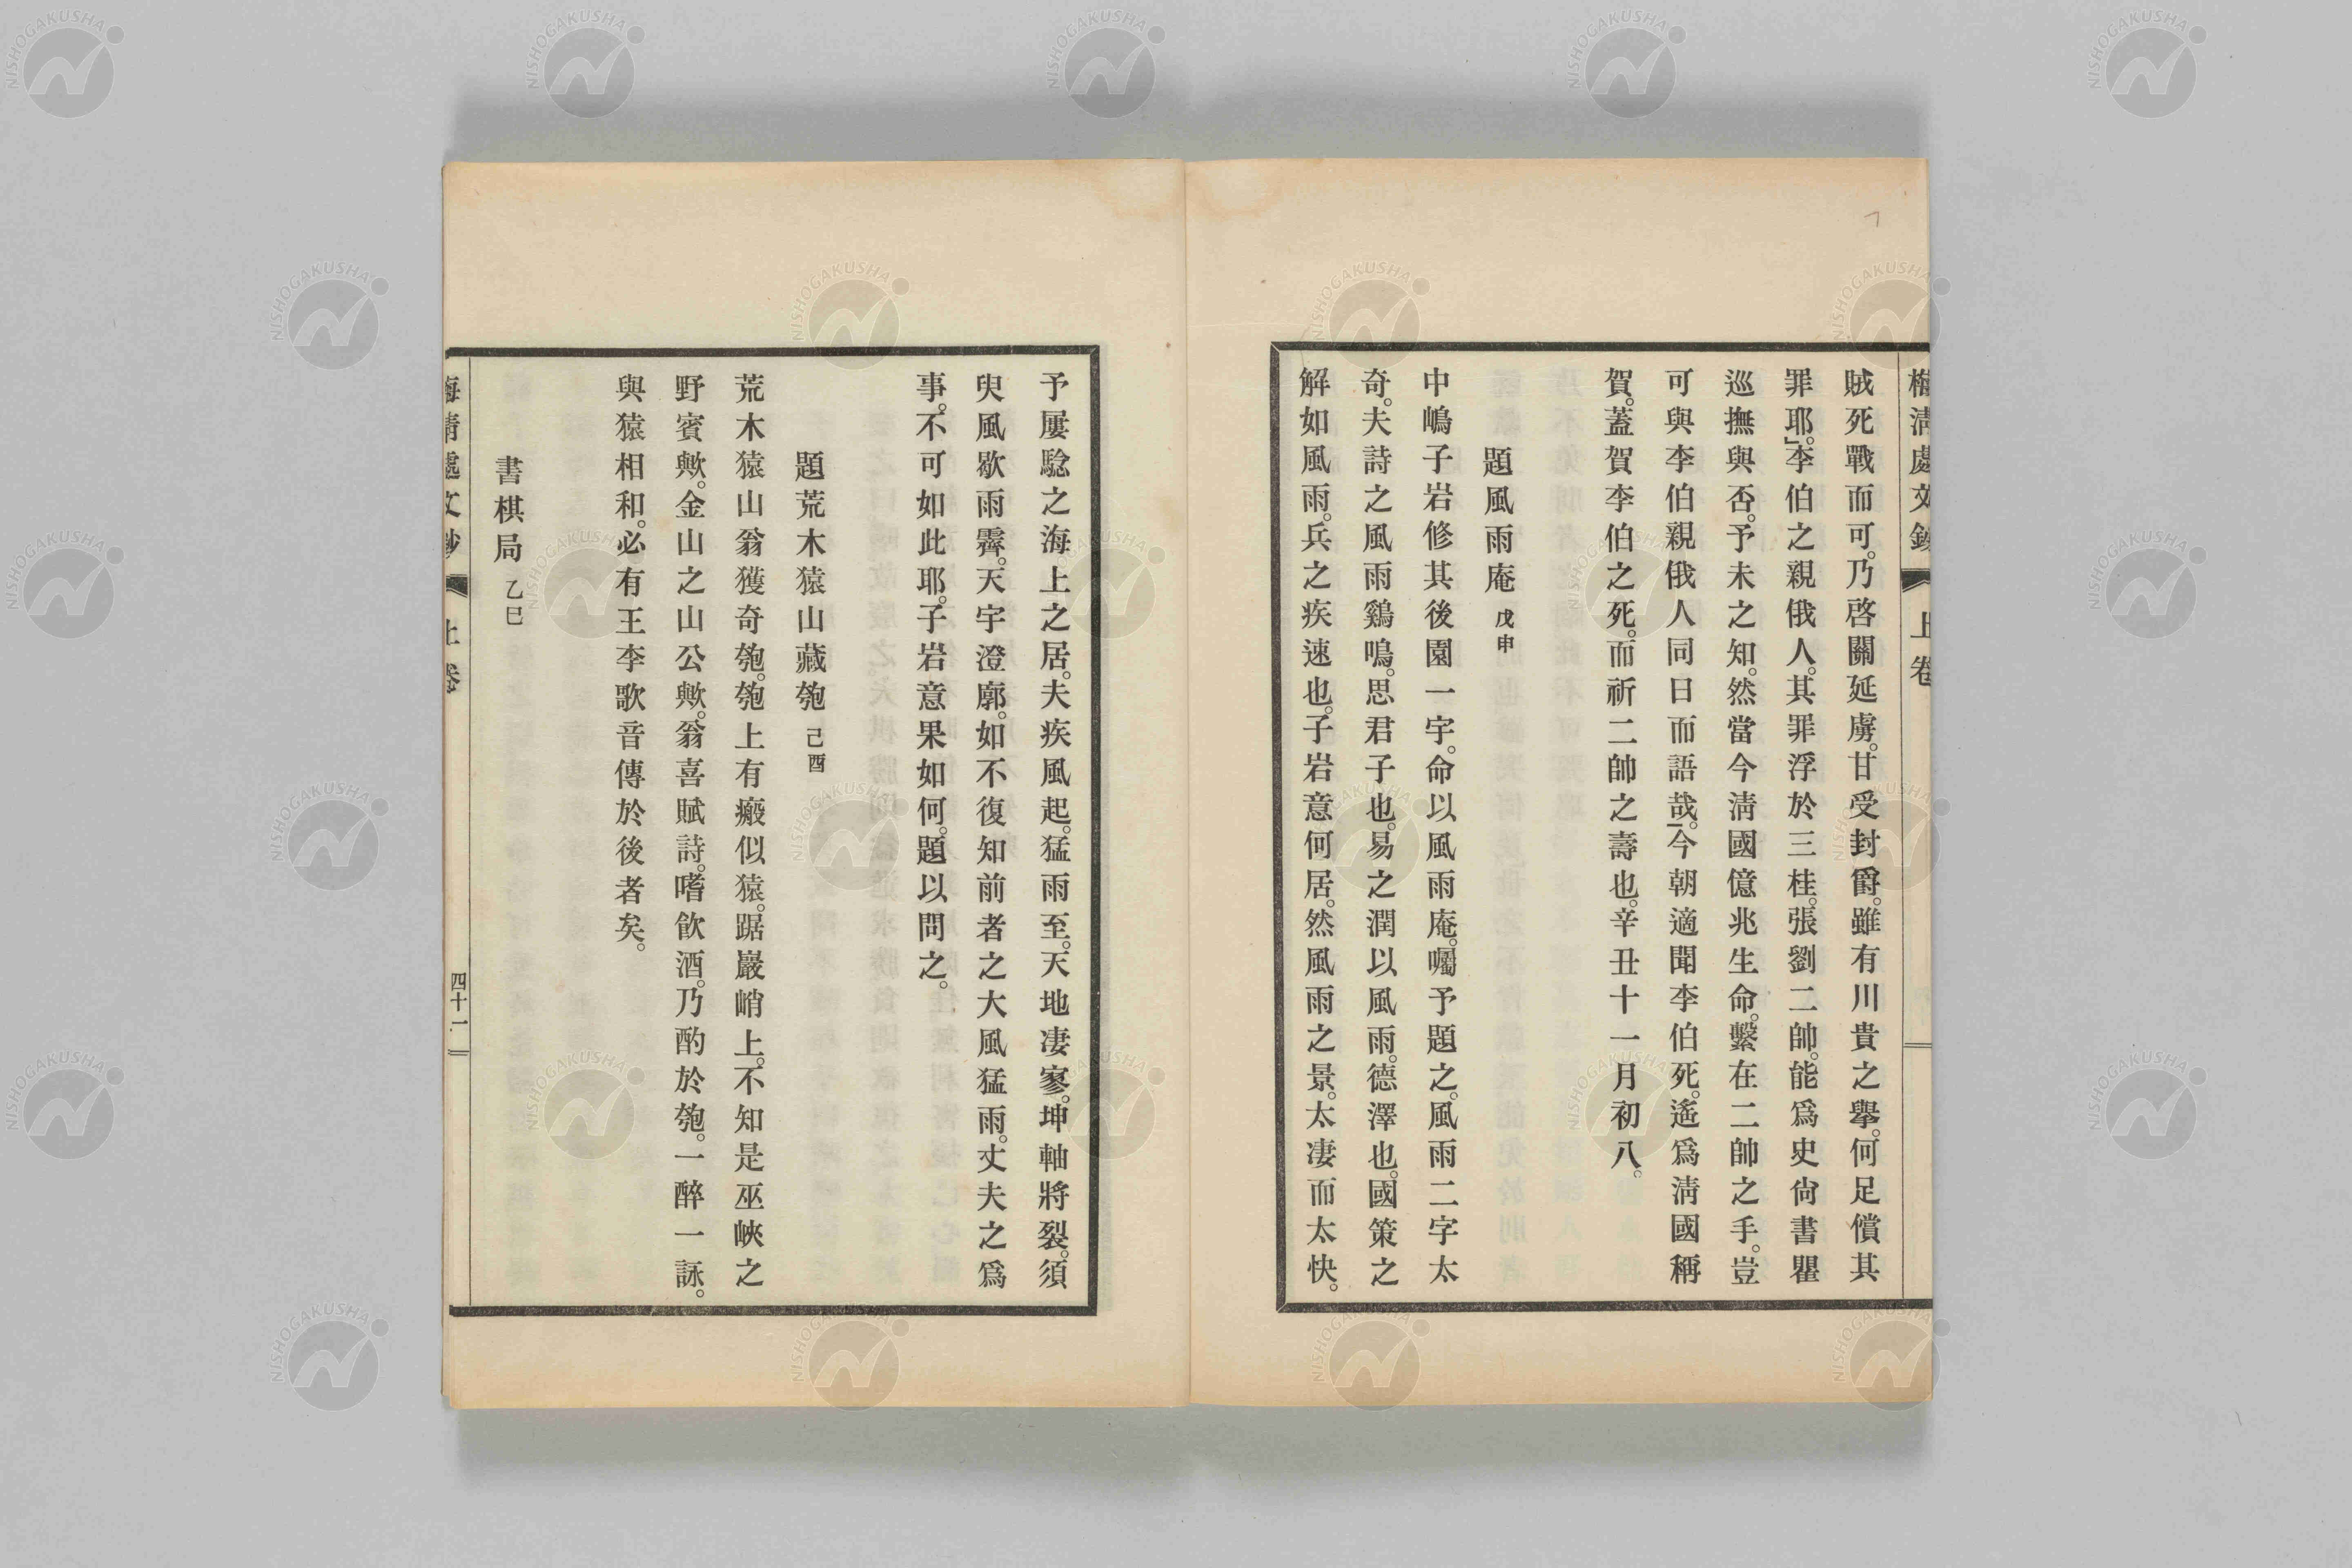 梅清處文鈔 上卷
賊死戰而可。乃啓關延虜。甘受封爵。雖有川貴之擧。何足償其
罪耶。」李伯之親俄人。其罪浮於三桂。張劉二帥。能爲史尙書瞿
巡撫與否。予未之知。然當今淸國億兆生命。繫在二帥之手。豈
可與李伯親俄人同日而語哉。」今朝適聞李伯死。遙爲淸國稱
賀。蓋賀李伯之死。而祈二帥之壽也。辛丑十一月初八。
題風雨庵 戊申
中嶋子岩修其後園一宇。命以風雨庵。囑予題之。風雨二字太
奇。夫詩之風雨鷄鳴。思君子也。易之潤以風雨。德澤也。國策之
解如風雨。兵之疾速也。子岩意何居。然風雨之景。太凄而太快。
予屢騐之海上之居。夫疾風起。猛雨至。天地凄寥。坤軸將裂。須
臾風歇雨霽。天宇澄廓。如不復知前者之大風猛雨。丈夫之爲
事。不可如此耶。子岩意果如何。題以問之。
題荒木猿山藏匏 己酉
荒木猿山翁獲奇匏。匏上有瘢似猿。踞巖峭上。不知是巫峽之
野賓歟。金山之山公歟。翁喜賦詩。嗜飮酒。乃酌於匏。一醉一詠。
與猿相和。必有王李歌音傳於後者矣。
書棋局 乙巳
梅清處文鈔 上卷 四十一
NISHOGAKUSHA